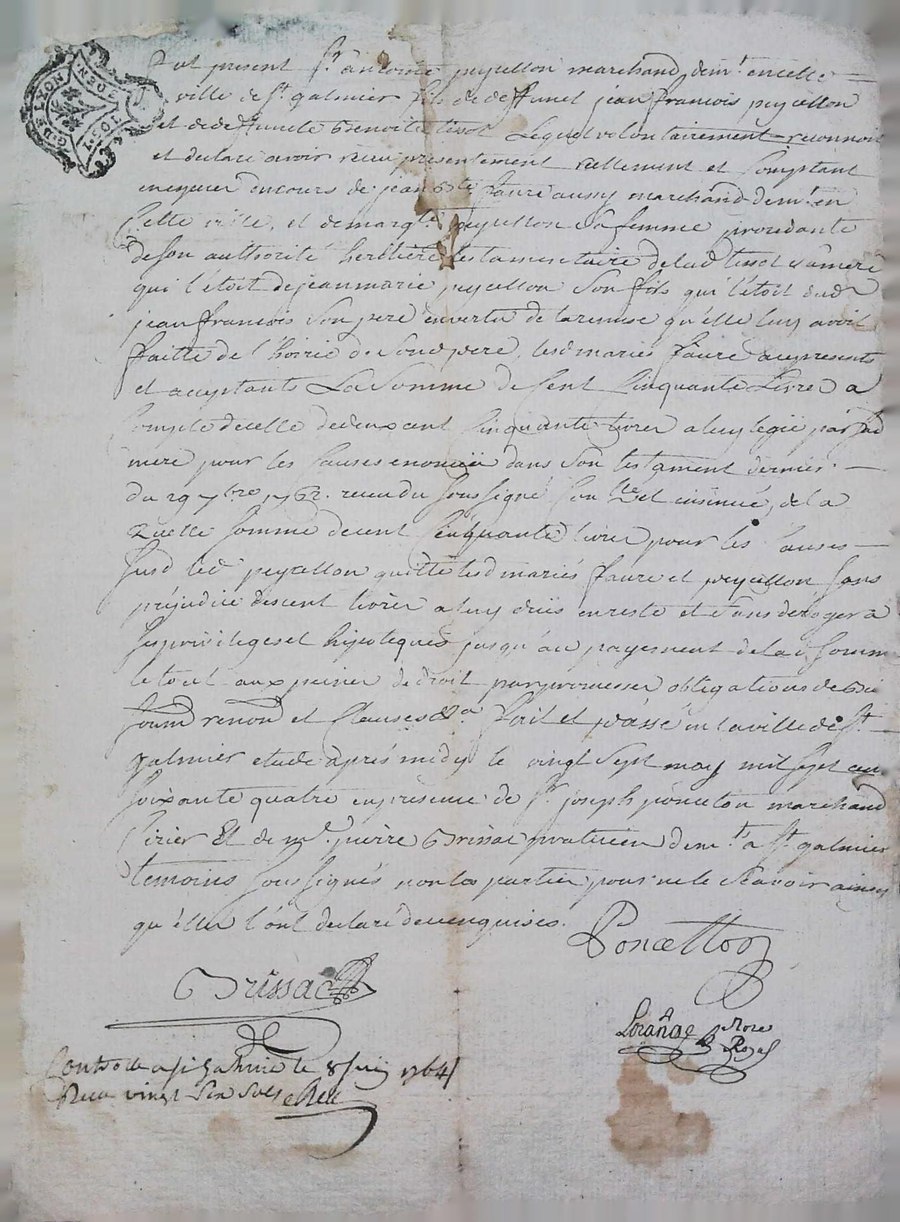 GDE LYON
DOUZN
fut present Sr. antoine peycellon marchand demt. en cette
ville de St. galmier fils de deffunct jean francois peycellon
et de deffuncte Benoite tissot Lequel volontairement reconnoit
et declare avoir reçu presentement reellement et Comptant
en ducours de jean Bte faure aussy marchand demt. en
Cette ville, et de margte. peycellon sa femme procedante
de son authorité heritiere testamentaire de lad tissot sa mere
qui l'étoit de jean marie peycellon son fils qui l'étoit dud
jean francois son pere en vertu de la remise qu'elle luy avoit
faitte de l'hoirie de son pere, lesd mariés faure
et acceptants La Somme de Cent Cinquante Livres a
Compte de celle de deux cent Cinquante livres a luy legué par sad
mere pour les Causes enoncées dans son testament dernier
du 29 7bre 1762. recu du soussigné Conlle et insinué, de la
quelle Somme de cent Cinquante livres pour les Causes
susd led peycellon quitte lesd mariés faure et peycellon sans
préjudice des cent livres a luy dües en reste et sans deroger a
ses privileges et hipoteques jusqu'au payement de lad somme
le tout aux peines de droit par promesses obligations de
soumd renond et Clauses &a. fait et passé en la ville de St.
galmier etude après midy le vingt sept may mil sept cent
soixante quatre en presence de Sr. joseph ponceton marchand
Cirier Et de me. pierre Brissac praticien demt. a St. galmier
temoins soussignés non les parties pour ne le Scavoir ainsy
qu'elles l'ont declaré de ce enquises.
Poncetton
Brissac
Lorange Nore
Royal
Controllé a St galmier le 8 juin 1764
Reçu vingt six sols